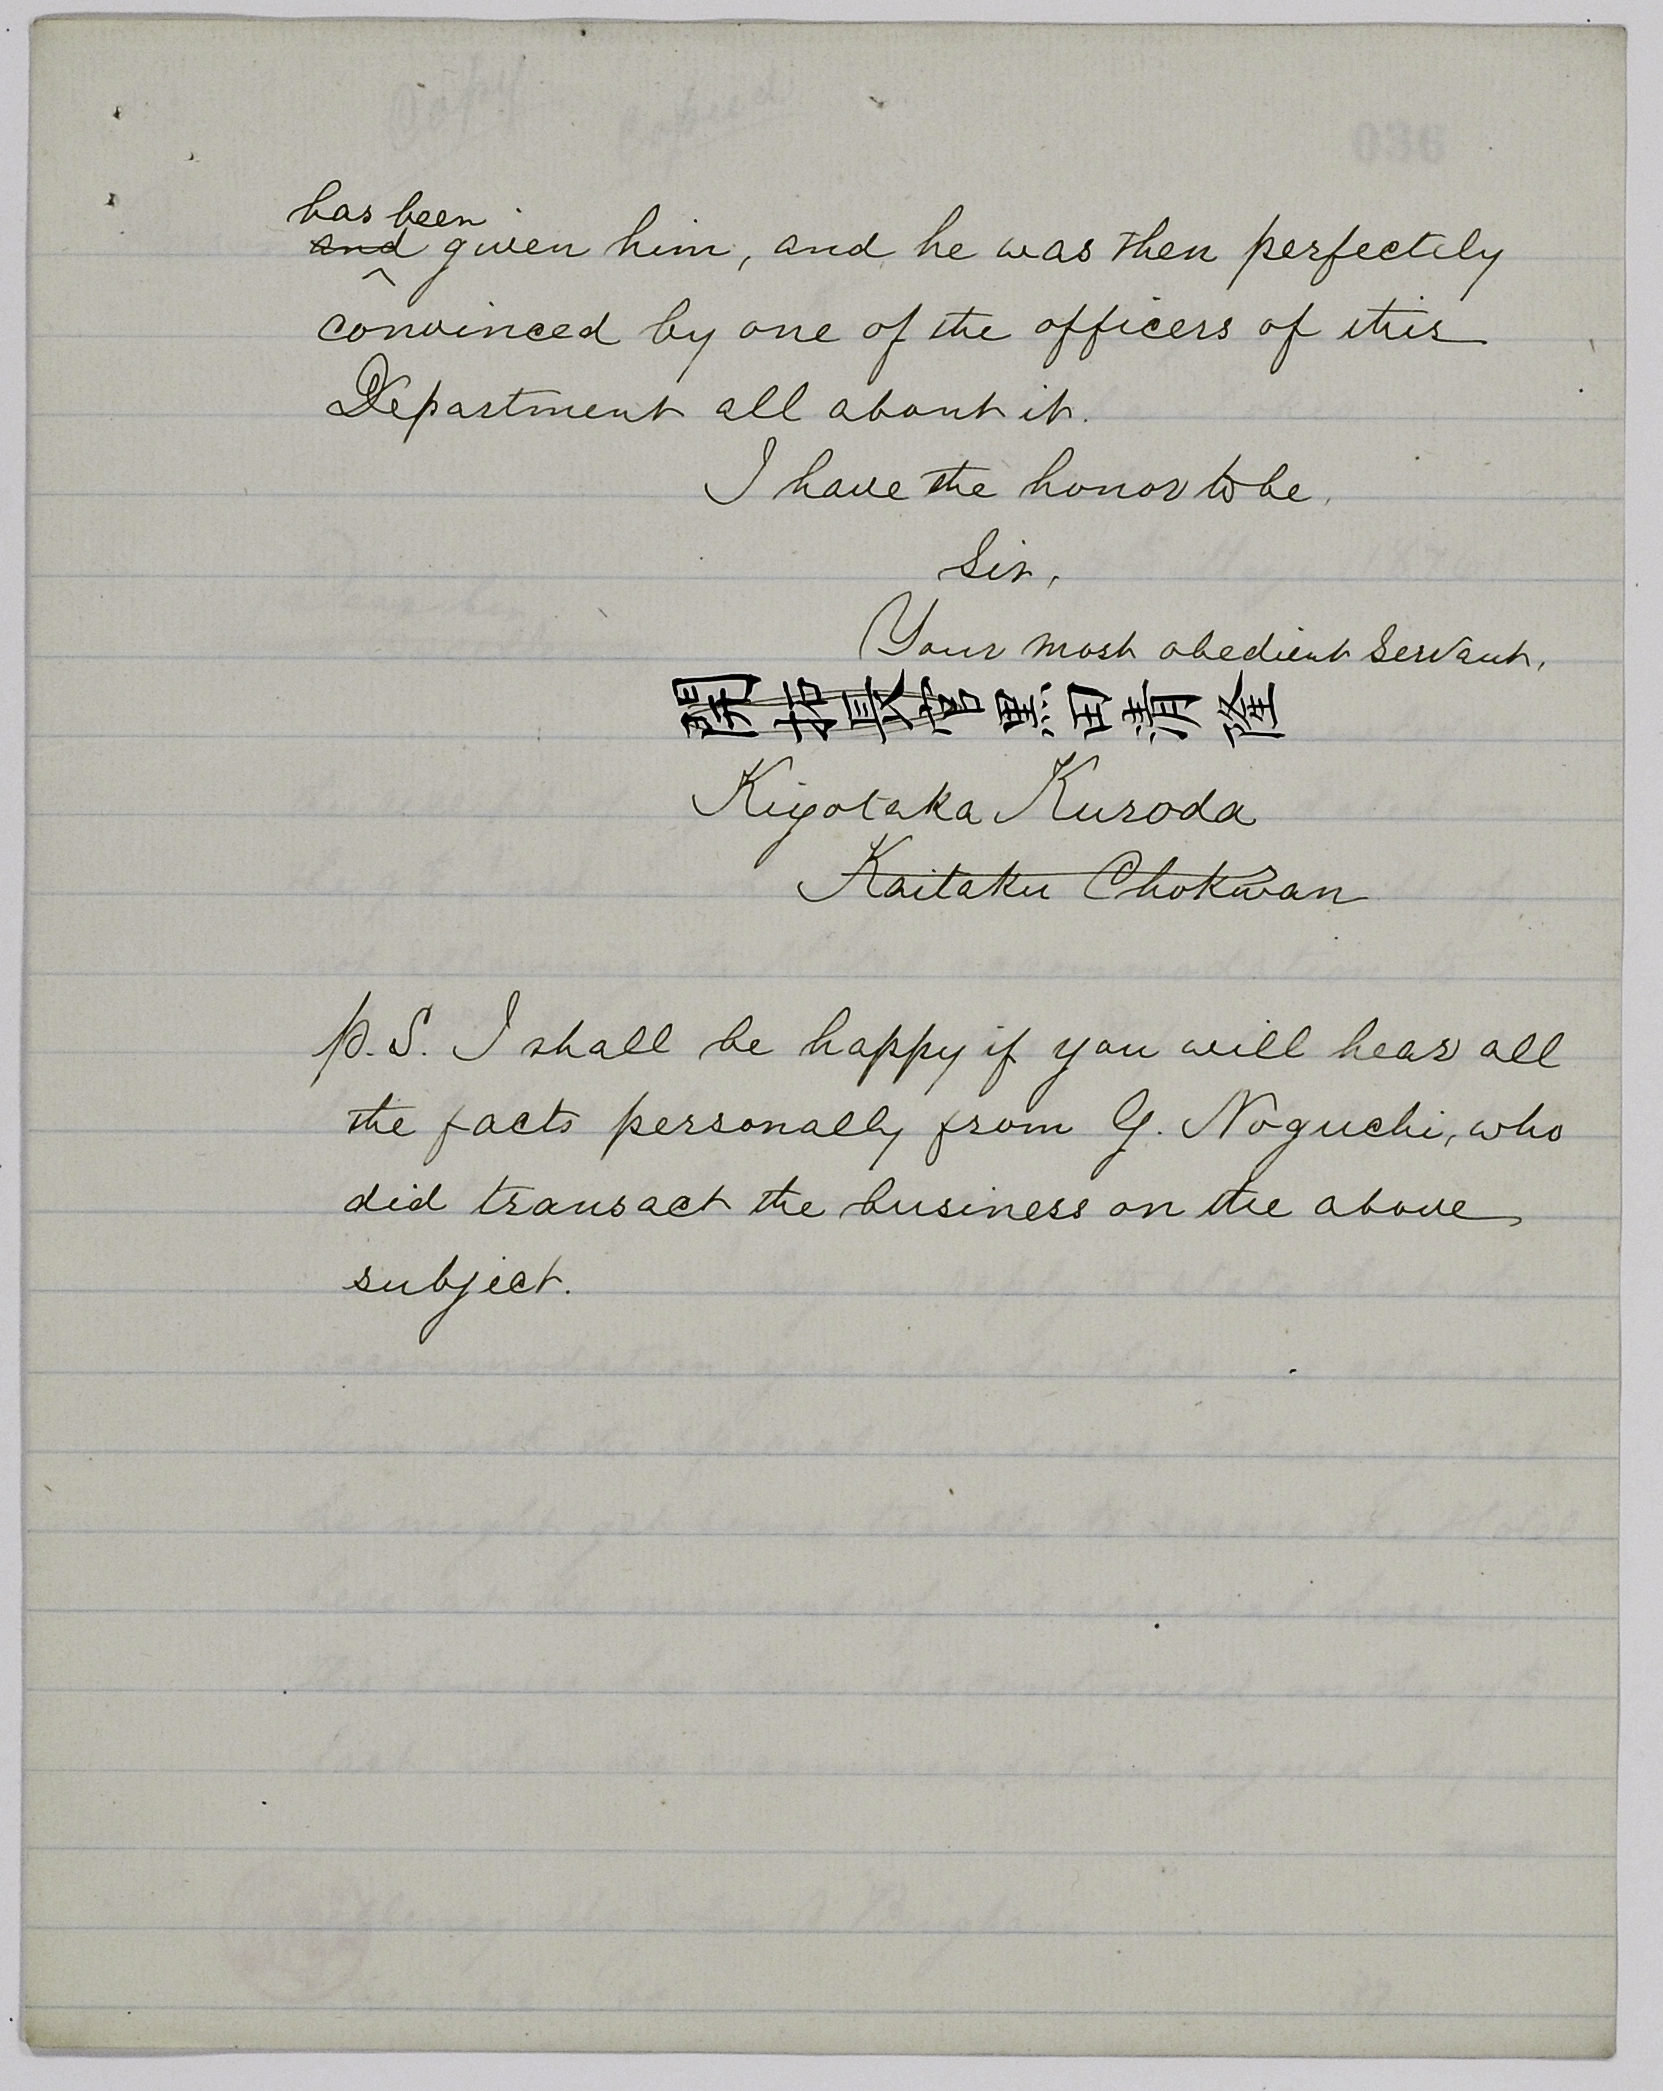 has been
and given him, and he was then perfectely
convinced by one of the officers of this
Department all about it.
I have the honor to be,
Sir,
Your most obedient Servant,
開拓長官黒田清隆
Kiyotaka Kuroda
Kaitaku Chokwan
P.S. I shall be happy if you will hear all
the facts personally from G. Noguchi, who
did transact the business on the above
subject.